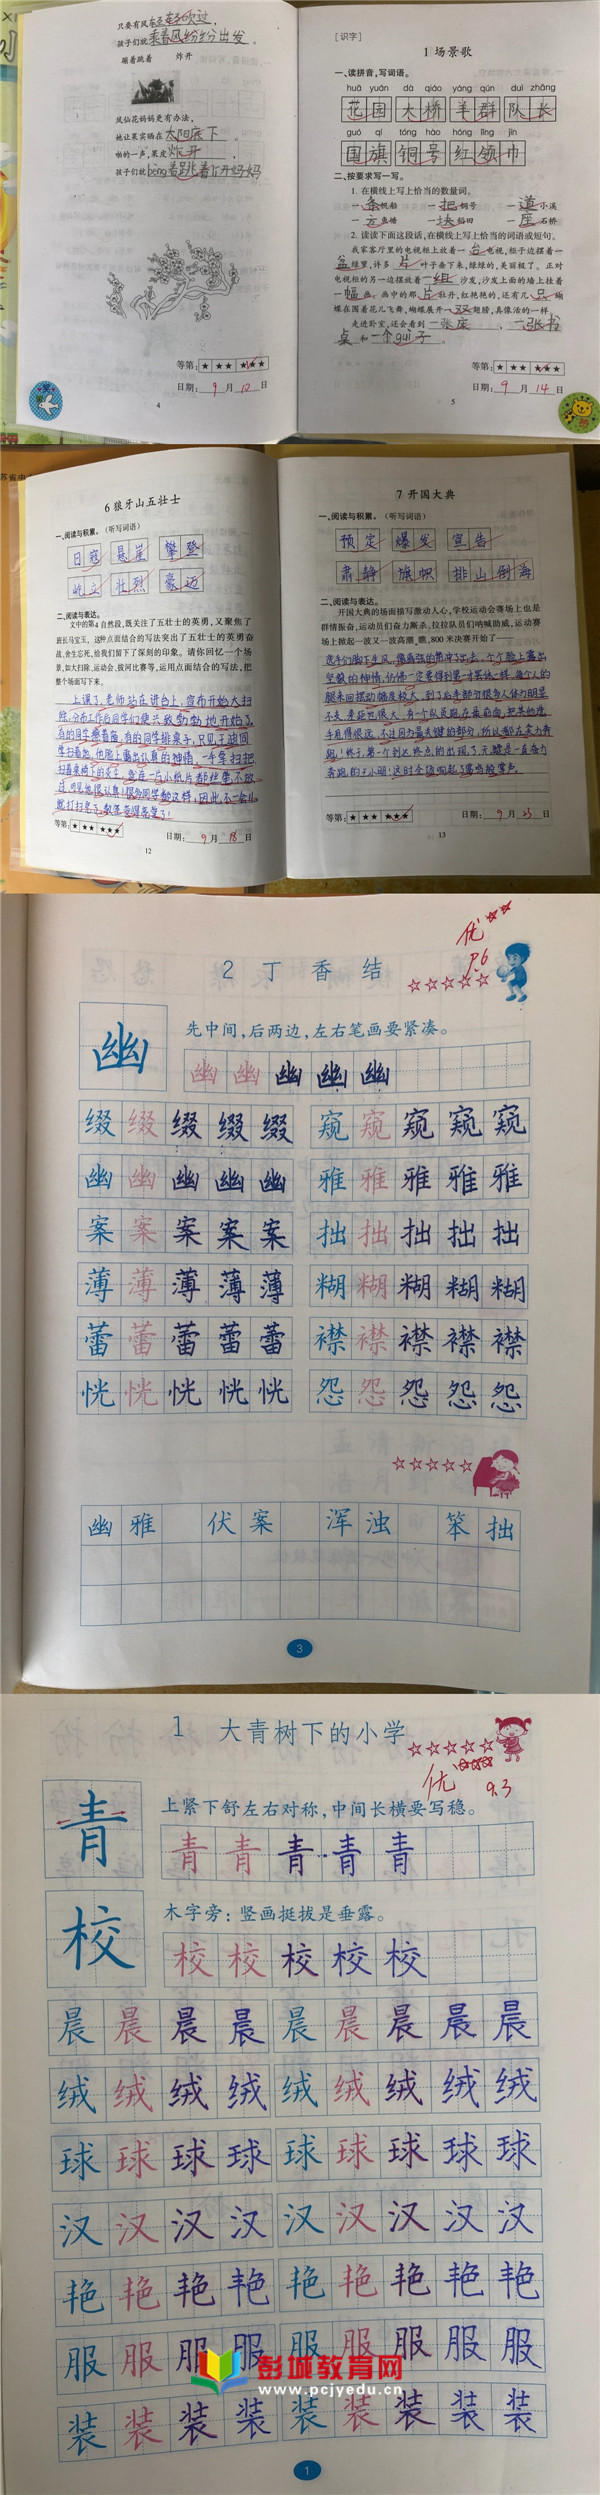 只要有风轻轻吹过，
孩子们就乘着风纷纷出发。
蹦着跳着 炸开
凤仙花妈妈更有办法，
她让果实晒在太阳底下。
啪的一声，果皮炸开，
孩子们就bèng着跳着离开妈妈
等第：★ ★★ ★★★
日期：9月12日
4
[识字]
1 场景歌
一、读拼音，写词语。
huā yuán dà qiáo yáng qún duì zhǎng
花园 大桥 羊群 队长
guó qí tóng hào hóng lǐng jīn
国旗 铜号 红领巾
二、按要求写一写。
1. 在横线上写上恰当的数量词。
一条帆船 一把铜号 一道小溪
一方鱼塘 一块稻田 一座石桥
2. 读读下面这段话，在横线上写上恰当的词语或短句。
我家客厅里的电视柜上放着一台电视，柜子边摆着一
盆绿萝，许多片叶子垂下来，绿绿的，美丽极了。正对
电视柜的另一边摆放着一组沙发，沙发上面的墙上挂着
一幅画，画中的那片牡丹，红艳艳的，还有几只蝴
蝶在围着花儿飞舞，蝴蝶展开一双翅膀，真像活的一样。
走进卧室，还会看到一张床、一张书
桌和一个guì子。
等第：★ ★★ ★★★
日期：9月14日
5
6 狼牙山五壮士
一、阅读与积累。（听写词语）
日寇 悬崖 攀登
屹立 壮烈 豪迈
二、阅读与表达。
文中的第4自然段，既关注了五壮士的英勇，又聚焦了
班长马宝玉，这种点面结合的写法突出了五壮士的英勇奋
战、舍生忘死，给我们留下了深刻的印象。请你回忆一个场
景，如大扫除、运动会、拔河比赛等，运用点面结合的写法，把
整个场面写下来。
上课了，老师站在讲台上，宣布开始大扫
除，分布工作后同学们便兴致勃勃地开始了。
有的同学擦着窗，有的同学排桌子，只见王迪同
学扫着地，他脸上露出认真的神情，一手拿扫把，
等第：★ ★★ ★★★
日期：9月18日
12
7 开国大典
一、阅读与积累。（听写词语）
预定 爆发 宣告
肃静 旗帜 排山倒海
二、阅读与表达。
开国大典的场面描写激动人心，学校运动会赛场上也是
群情振奋，运动员们奋力厮杀，拉拉队员们呐喊助威，运动赛
场上掀起一波又一波高潮。瞧，800米决赛开始了——
等第：★ ★★ ★★★
日期：9月23日
13
优
P.6
2 丁香结
幽 先中间，后两边，左右笔画要紧凑。
幽幽幽幽幽
缀缀缀缀缀 窥窥窥窥窥
幽幽幽幽幽 雅雅雅雅雅
案案案案案 拙拙拙拙拙
薄薄薄薄薄 糊糊糊糊糊
蕾蕾蕾蕾蕾 襟襟襟襟襟
恍恍恍恍恍 怨怨怨怨怨
幽雅 伏案 浑浊 笨拙
3
1 大青树下的小学
优 9.3
青 上紧下舒左右对称，中间长横要写稳。
青青青青青
校 木字旁：竖画挺拔是垂露。
校校校校校
晨晨晨晨晨晨晨晨晨
绒绒绒绒绒绒绒绒绒
球球球球球球球球球
汉汉汉汉汉汉汉汉汉
艳艳艳艳艳艳艳艳艳
服服服服服服服服服
装装装装装装装装装
彭城教育网
www.pcjyedu.cn
1